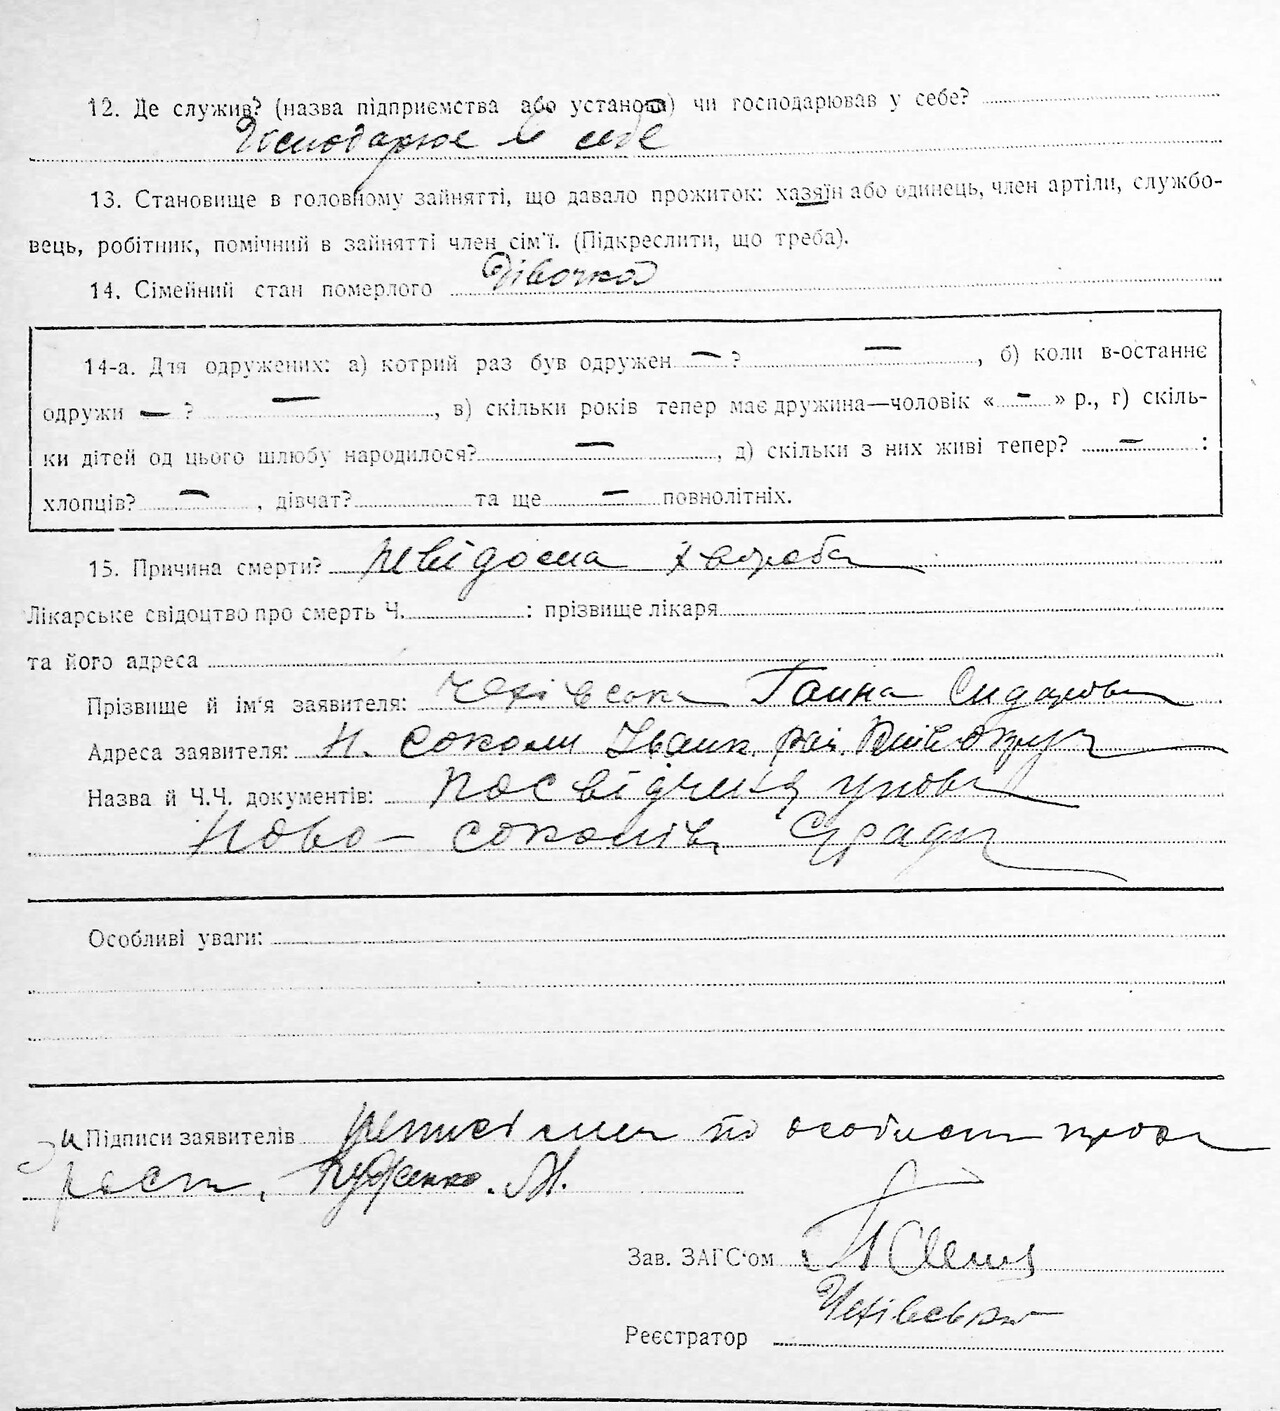 12. Де служив? (назва підприємства або установа) чи господарював у себе?
Господарює в себе
13. Становище в головному зайнятті, що давало прожиток: хазяїн або одинець, член артіли, службо-
вець, робітник, помічний в зайнятті член сім'ї. (Підкреслити, що треба).
14. Сімейний стан померлого Дівочка
14-а. Для одружених: а) котрий раз був одружен — ? — , б) коли в-останнє
одружи — ? — , в) скільки років тепер має дружина—чоловік « - » р., г) скіль-
ки дітей од цього шлюбу народилося? — , д) скільки з них живі тепер? — :
хлопців? — , дівчат? та ще — повнолітніх.
15. Причина смерти? невідома хвороба
Лікарське свідоцтво про смерть Ч. : прізвище лікаря
та його адреса
Прізвище й ім'я заявителя: Чехівська Ганна Сидорова
Адреса заявителя: Н. Соколи Іванк. рай. Київ округ
Назва й Ч.Ч. документів: посвідчення упов.
Ново-соколів. С/ради
Особливі уваги:
Підписи заявителів неписьмен по особист прох
Зав. ЗАГС'ом
Чехівська
Реєстратор